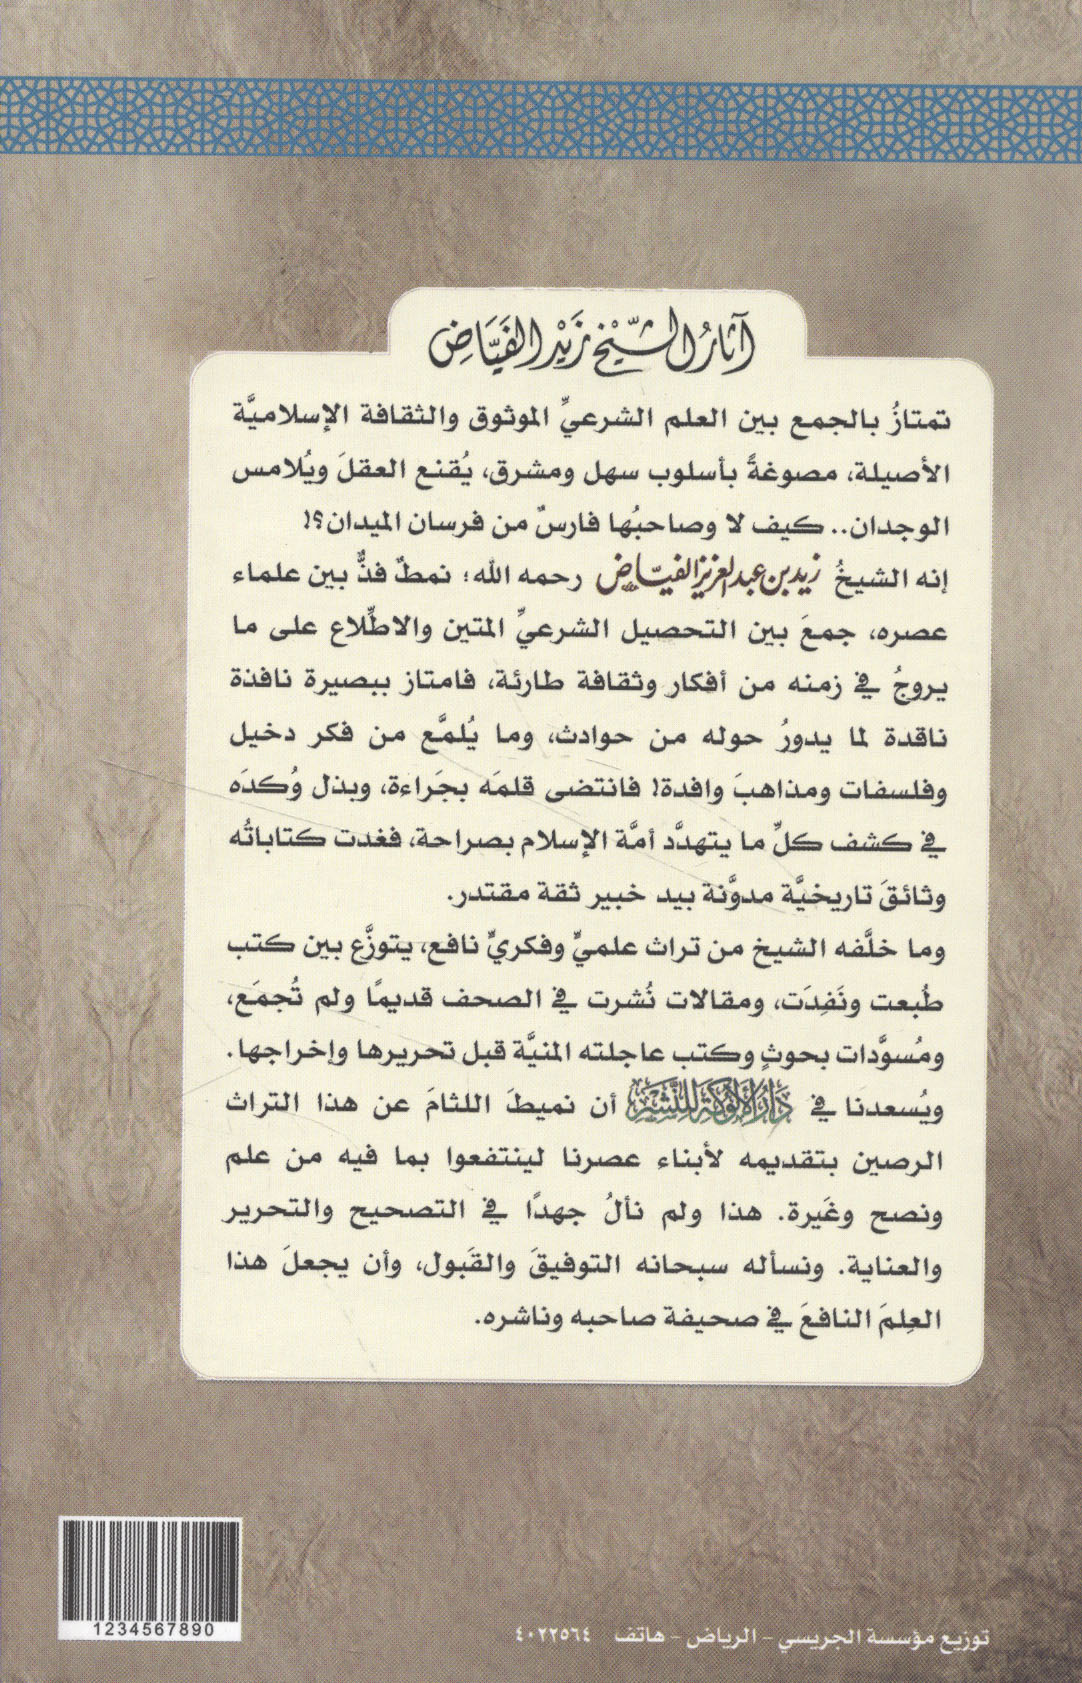 آثَارُ الشَّيْخِ زَيْد الفَيَّاضِ
تمتازُ بالجمع بين العلم الشرعيِّ الموثوق والثقافة الإسلاميَّة
الأصيلة، مصوغةً بأسلوب سهل ومشرق، يُقنع العقلَ ويُلامس
الوجدان.. كيف لا وصاحبُها فارسٌ من فرسان الميدان؟!
إنه الشيخُ زيد بن عبد العزيز الفيّاض رحمه الله؛ نمطٌ فذٌّ بين علماء
عصره، جمعَ بين التحصيل الشرعيِّ المتين والاطِّلاع على ما
يروجُ في زمنه من أفكار وثقافة طارئة، فامتاز ببصيرة نافذة
ناقدة لما يدورُ حوله من حوادث، وما يُلمَّع من فكر دخيل
وفلسفات ومذاهبَ وافدة! فانتضى قلمَه بجَراءة، وبذل وُكدَه
في كشف كلِّ ما يتهدَّد أمَّة الإسلام بصراحة، فغدت كتاباتُه
وثائقَ تاريخيَّة مدوَّنة بيد خبير ثقة مقتدر.
وما خلَّفه الشيخ من تراث علميٍّ وفكريٍّ نافع، يتوزَّع بين كتب
طُبعت ونَفِدَت، ومقالات نُشرت في الصحف قديمًا ولم تُجمَع،
ومُسوَّدات بحوثٍ وكتب عاجلته المنيَّة قبل تحريرها وإخراجها.
ويُسعدنا في دَارُ الأَلُوكَة لِلنَّشْر أن نميطَ اللثامَ عن هذا التراث
الرصين بتقديمه لأبناء عصرنا لينتفعوا بما فيه من علم
ونصح وغَيرة. هذا ولم نألُ جهدًا في التصحيح والتحرير
والعناية. ونسأله سبحانه التوفيقَ والقَبول، وأن يجعلَ هذا
العِلمَ النافعَ في صحيفة صاحبه وناشره.
1234567890
توزيع مؤسسة الجريسي - الرياض - هاتف ٤٠٢٢٥٦٤